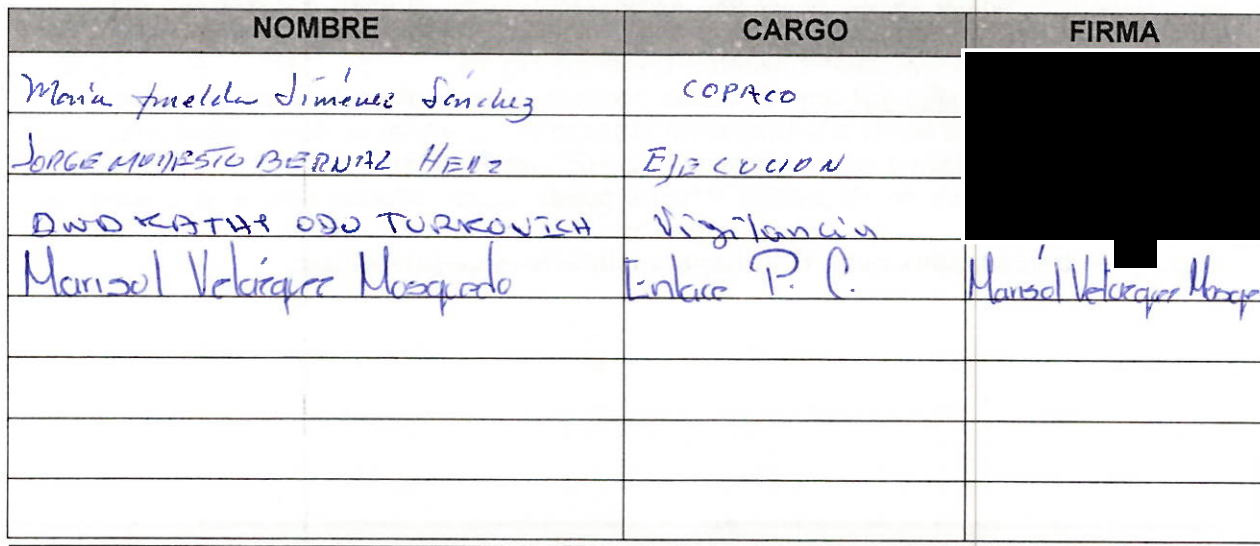 NOMBRE CARGO FIRMA
María Imelda Jiménez Sánchez COPACO
JORGE MODESTO BERNAL HERZ EJECUCION
KATHY ODU TURKOVICH Vigilancia
Marisol Velázquez Mosqueda Enlace P. C. Marisol Velázquez